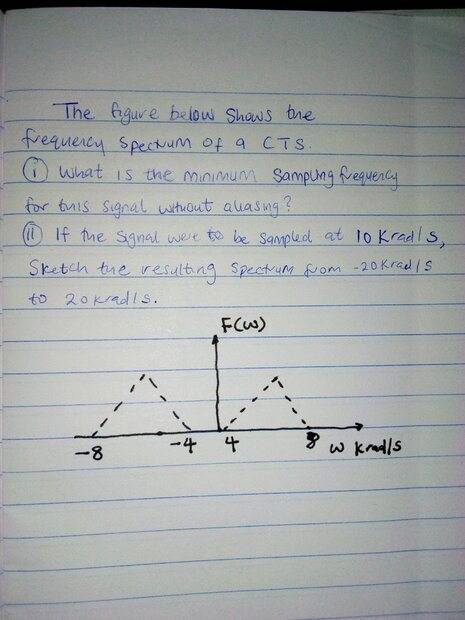 The figure below shows the
frequency spectrum of a CTS.
(i) What is the minimum sampling frequency
for this signal without aliasing?
(ii) If the signal were to be sampled at 10 Krad/s,
Sketch the resulting spectrum from -20Krad/s
to 20krad/s.
F(w)
-8 -4 4 8 w krad/s